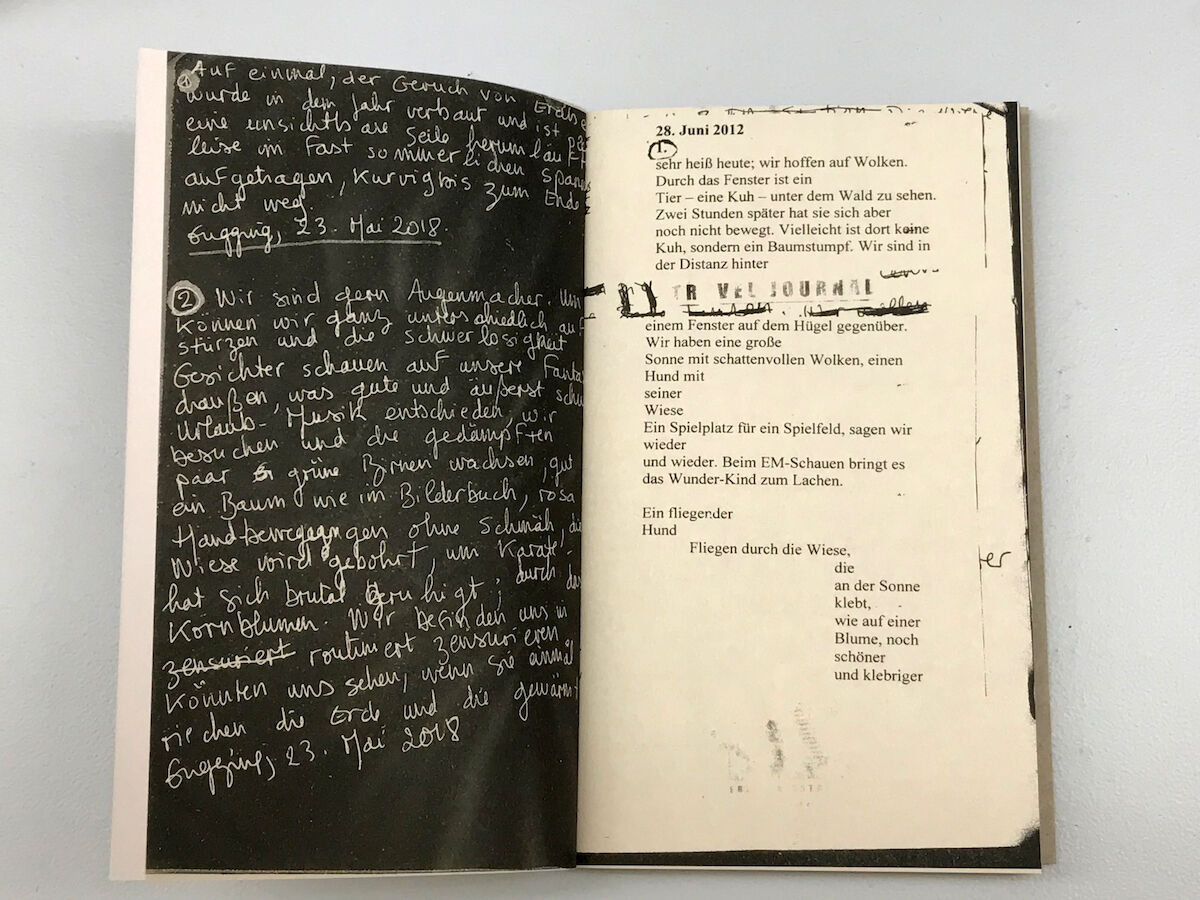 1
Auf einmal, der Geruch von
wurde in dem Jahr verbaut und ist
eine unsichtbare Seile herum
leise im Fast sommerlichen
aufgetragen, Kurvig bis zum Ende
nicht weg.
Gugging, 23. Mai 2018.
2 Wir sind gern Augenmacher. Um
können wir ganz unterschiedlich auf
stürzen und die Schwerlosigkeit
Gesichter schauen auf unsere
draußen, was gute und äußerst
Urlaub-Musik entschieden, wir
besuchen und die gedämpften
paar grüne Birnen wachsen, gut
ein Baum wie im Bilderbuch, rosa
Handbewegungen ohne Schmäh, die
Wiese wird gebohrt, um Karate-
hat sich brutal beruhigt, durch das
Kornblumen. Wir befinden uns in
zensuriert routiniert zensurieren
Könnten uns sehen, wenn sie einmal
riechen die Erde und die
Gugging, 23. Mai 2018
28. Juni 2012
1.
sehr heiß heute; wir hoffen auf Wolken.
Durch das Fenster ist ein
Tier – eine Kuh – unter dem Wald zu sehen.
Zwei Stunden später hat sie sich aber
noch nicht bewegt. Vielleicht ist dort keine
Kuh, sondern ein Baumstumpf. Wir sind in
der Distanz hinter
TR VEL JOURNAL
einem Fenster auf dem Hügel gegenüber.
Wir haben eine große
Sonne mit schattenvollen Wolken, einen
Hund mit
seiner
Wiese
Ein Spielplatz für ein Spielfeld, sagen wir
wieder
und wieder. Beim EM-Schauen bringt es
das Wunder-Kind zum Lachen.
Ein fliegender
Hund
Fliegen durch die Wiese,
die
an der Sonne
klebt,
wie auf einer
Blume, noch
schöner
und klebriger
er